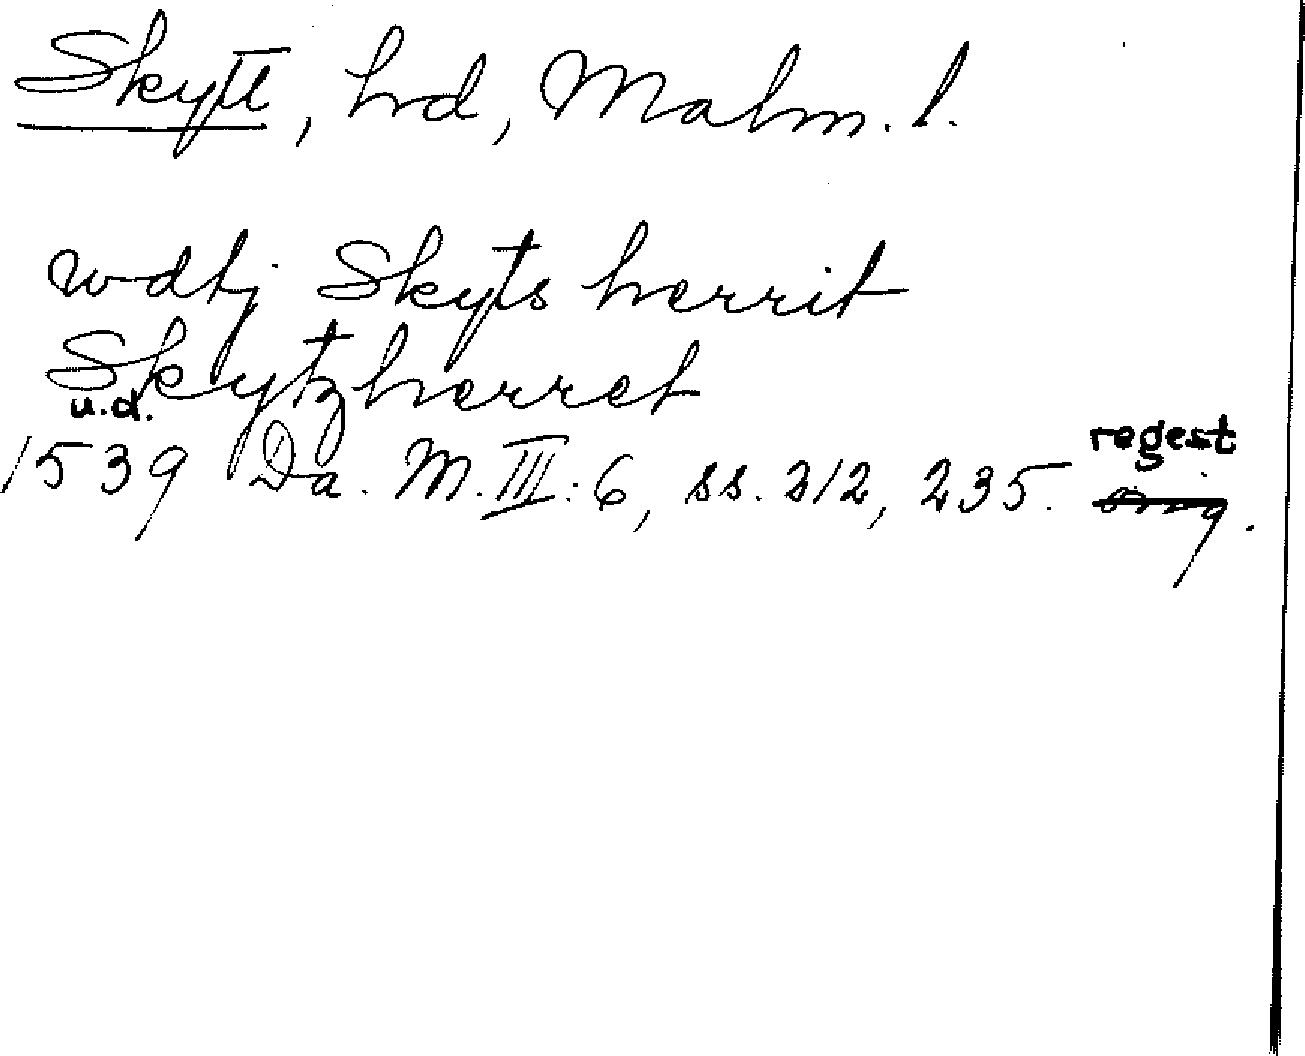 Skytt, hrd, Malm. l.
wdtj Skyts herrit
Skytzherret
u.d.
1539 Da. M. III: 6, ss. 312, 235. regest